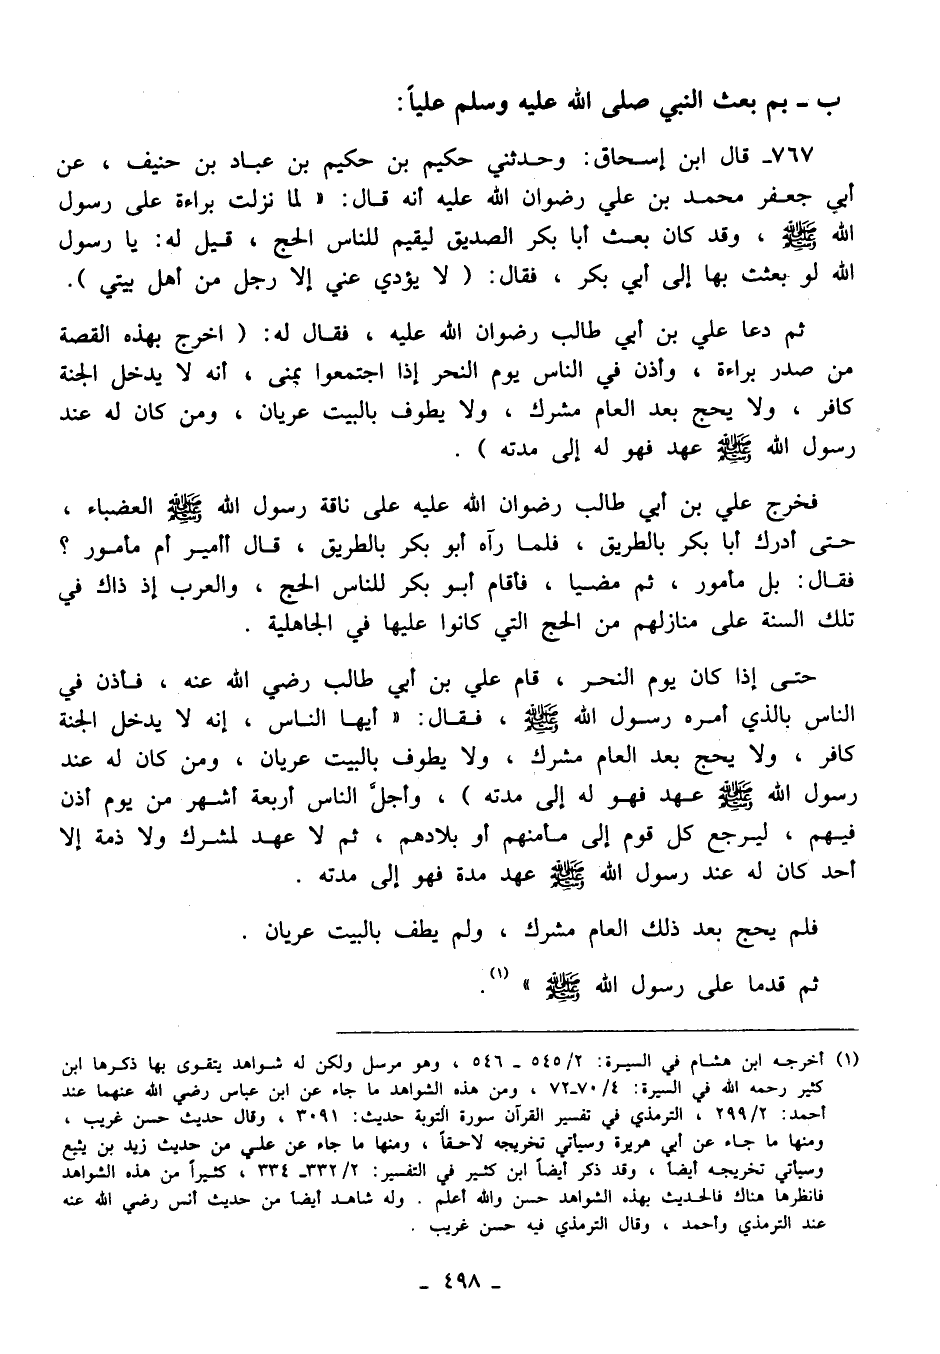 ب ـ بم بعث النبي صلى الله عليه وسلم علياً:
٧٦٧ـ قال ابن إسحاق: وحدثني حكيم بن حكيم بن عباد بن حنيف ، عن
أبي جعفر محمد بن علي رضوان الله عليه أنه قال: « لما نزلت براءة على رسول
الله ﷺ ، وقد كان بعث أبا بكر الصديق ليقيم للناس الحج ، قيل له: يا رسول
الله لو بعثت بها إلى أبي بكر ، فقال: ( لا يؤدي عني إلا رجل من أهل بيتي ).
ثم دعا علي بن أبي طالب رضوان الله عليه ، فقال له: ( اخرج بهذه القصة
من صدر براءة ، وأذن في الناس يوم النحر إذا اجتمعوا بمنى ، أنه لا يدخل الجنة
كافر ، ولا يحج بعد العام مشرك ، ولا يطوف بالبيت عريان ، ومن كان له عند
رسول الله ﷺ عهد فهو له إلى مدته ) .
فخرج علي بن أبي طالب رضوان الله عليه على ناقة رسول الله ﷺ العضباء ،
حتى أدرك أبا بكر بالطريق ، فلما رآه أبو بكر بالطريق ، قال أأمير أم مأمور ؟
فقال: بل مأمور ، ثم مضيا ، فأقام أبو بكر للناس الحج ، والعرب إذ ذاك في
تلك السنة على منازلهم من الحج التي كانوا عليها في الجاهلية .
حتى إذا كان يوم النحر ، قام علي بن أبي طالب رضي الله عنه ، فأذن في
الناس بالذي أمره رسول الله ﷺ ، فقال: « أيها الناس ، إنه لا يدخل الجنة
كافر ، ولا يحج بعد العام مشرك ، ولا يطوف بالبيت عريان ، ومن كان له عند
رسول الله ﷺ عهد فهو له إلى مدته ) ، وأجلَّ الناس أربعة أشهر من يوم أذن
فيهم ، ليرجع كل قوم إلى مأمنهم أو بلادهم ، ثم لا عهد لمشرك ولا ذمة إلا
أحد كان له عند رسول الله ﷺ عهد مدة فهو إلى مدته .
فلم يحج بعد ذلك العام مشرك ، ولم يطف بالبيت عريان .
ثم قدما على رسول الله ﷺ » (١).
(١) أخرجه ابن هشام في السيرة: ٢/ ٥٤٥ ـ ٥٤٦ ، وهو مرسل ولكن له شواهد يتقوى بها ذكرها ابن
كثير رحمه الله في السيرة: ٤/ ٧٠ـ٧٢ ، ومن هذه الشواهد ما جاء عن ابن عباس رضي الله عنهما عند
أحمد: ٢/ ٢٩٩ ، الترمذي في تفسير القرآن سورة التوبة حديث: ٣٠٩١ ، وقال حديث حسن غريب ،
ومنها ما جاء عن أبي هريرة وسيأتي تخريجه لاحقاً ، ومنها ما جاء عن علي من حديث زيد بن يثيع
وسيأتي تخريجه أيضاً ، وقد ذكر أيضاً ابن كثير في التفسير: ٢/ ٣٣٢ـ ٣٣٤ ، كثيراً من هذه الشواهد
فانظرها هناك فالحديث بهذه الشواهد حسن والله أعلم . وله شاهد أيضاً من حديث أنس رضي الله عنه
عند الترمذي وأحمد ، وقال الترمذي فيه حسن غريب .
ـ ٤٩٨ ـ